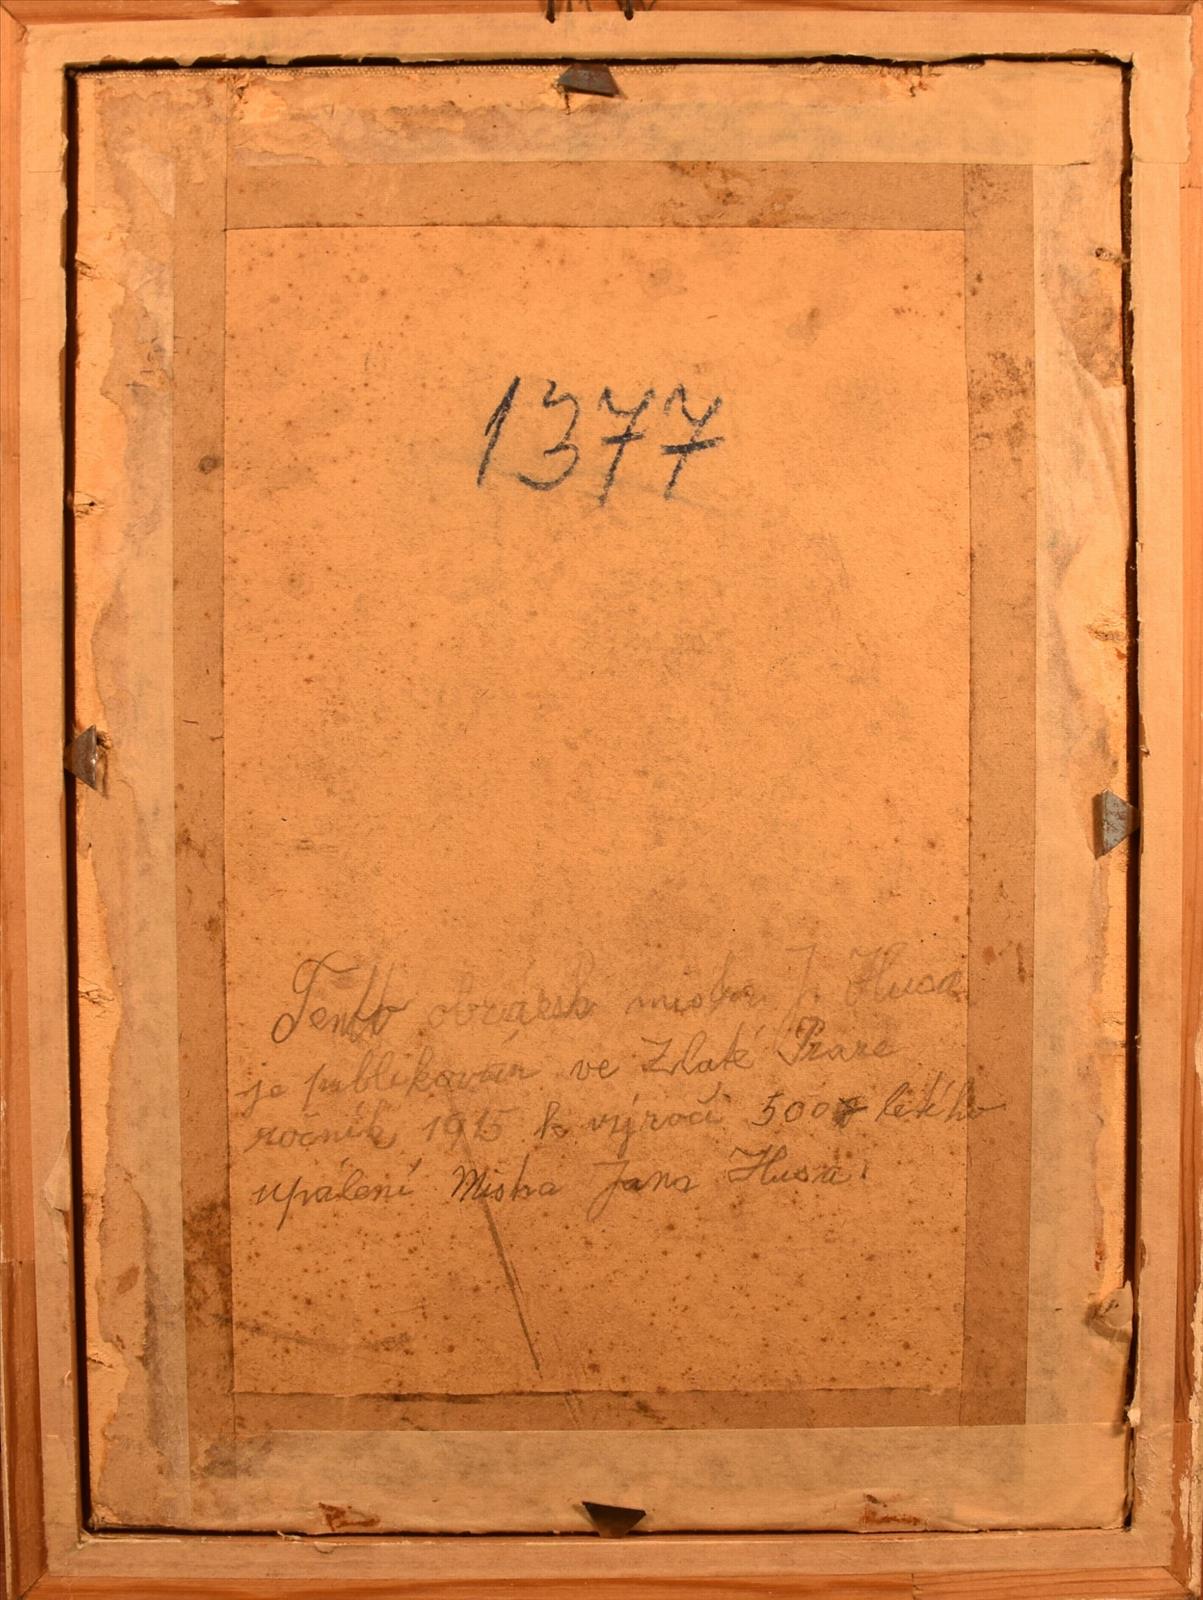 1377
Tento obrázek mistra J. Husa
je publikován ve Zlaté Praze
ročník 1915 k výročí 500 letého
upálení Mistra Jana Husa.